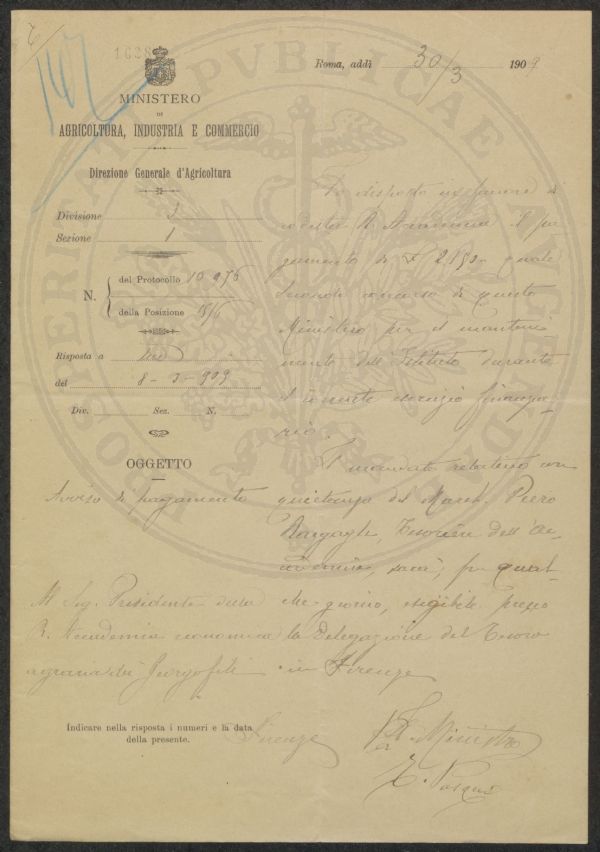 Roma, addì 30/3 1909
MINISTERO
DI
AGRICOLTURA, INDUSTRIA E COMMERCIO
Direzione Generale d'Agricoltura
Divisione 3
Sezione 1
N.
del Protocollo 10976
della Posizione
Risposta a
del 8-3-909
Div. Sez. N.
OGGETTO
Avviso di pagamento
Al Sig. Presidente della
R. Accademia economica
agraria dei Georgofili
Firenze
Indicare nella risposta i numeri e la data
della presente.
Ho disposto in favore di
codesta R. Accademia il pa
gamento di quale
concorso di questo
Ministero per il manteni
mento dell'Istituto durante
il corrente esercizio finanzia
rio.
Il mandato relativo con
quietanza del March. Piero
Bargagli, Tesoriere dell'Ac
cademia, sarà, fra qual
che giorno, esigibile presso
la Delegazione del Tesoro
in Firenze
Pel Ministro